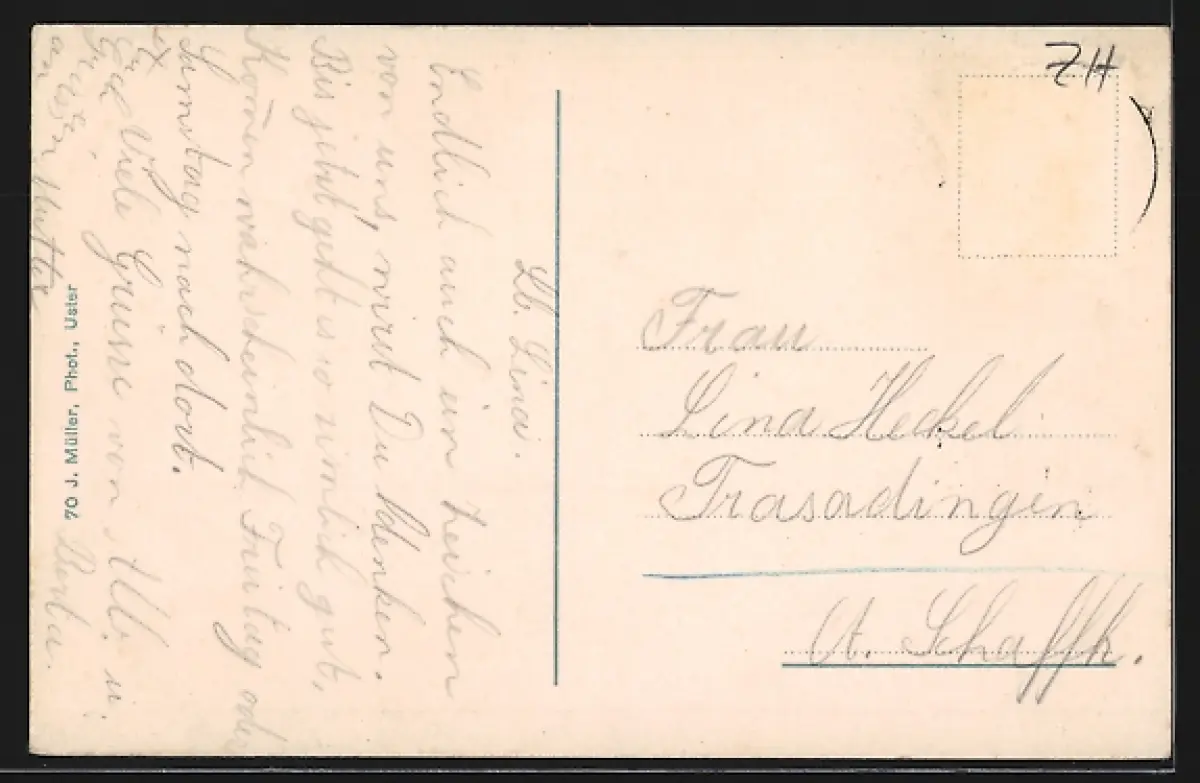 Lb. Lina.
Endlich auch ein Zeichen
von uns, wirst Du denken.
Bis jetzt geht es so ziemlich gut,
Kom̄en wahrscheinlich Freitag oder
Samstag nach dort.
Viele Grüsse von Alb. u.
Berta.
an Mutter
70 J. Müller, Phot., Uster
ZH
Frau
Lina Heckel
Trasadingen
Ct. Schaffh.